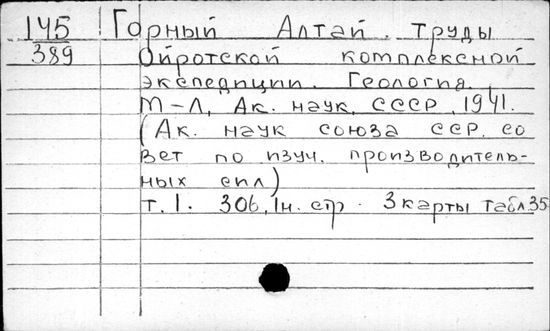 145 Горный Алтай. Труды
389 Ойротской комплексной
экспедиции. Геология.
М-Л, Ак. наук, СССР, 1941.
(Ак. наук союза ССР. со
вет по изуч. производитель-
ных сил)
т. I. 306, Iн. стр. 3 карты табл 35